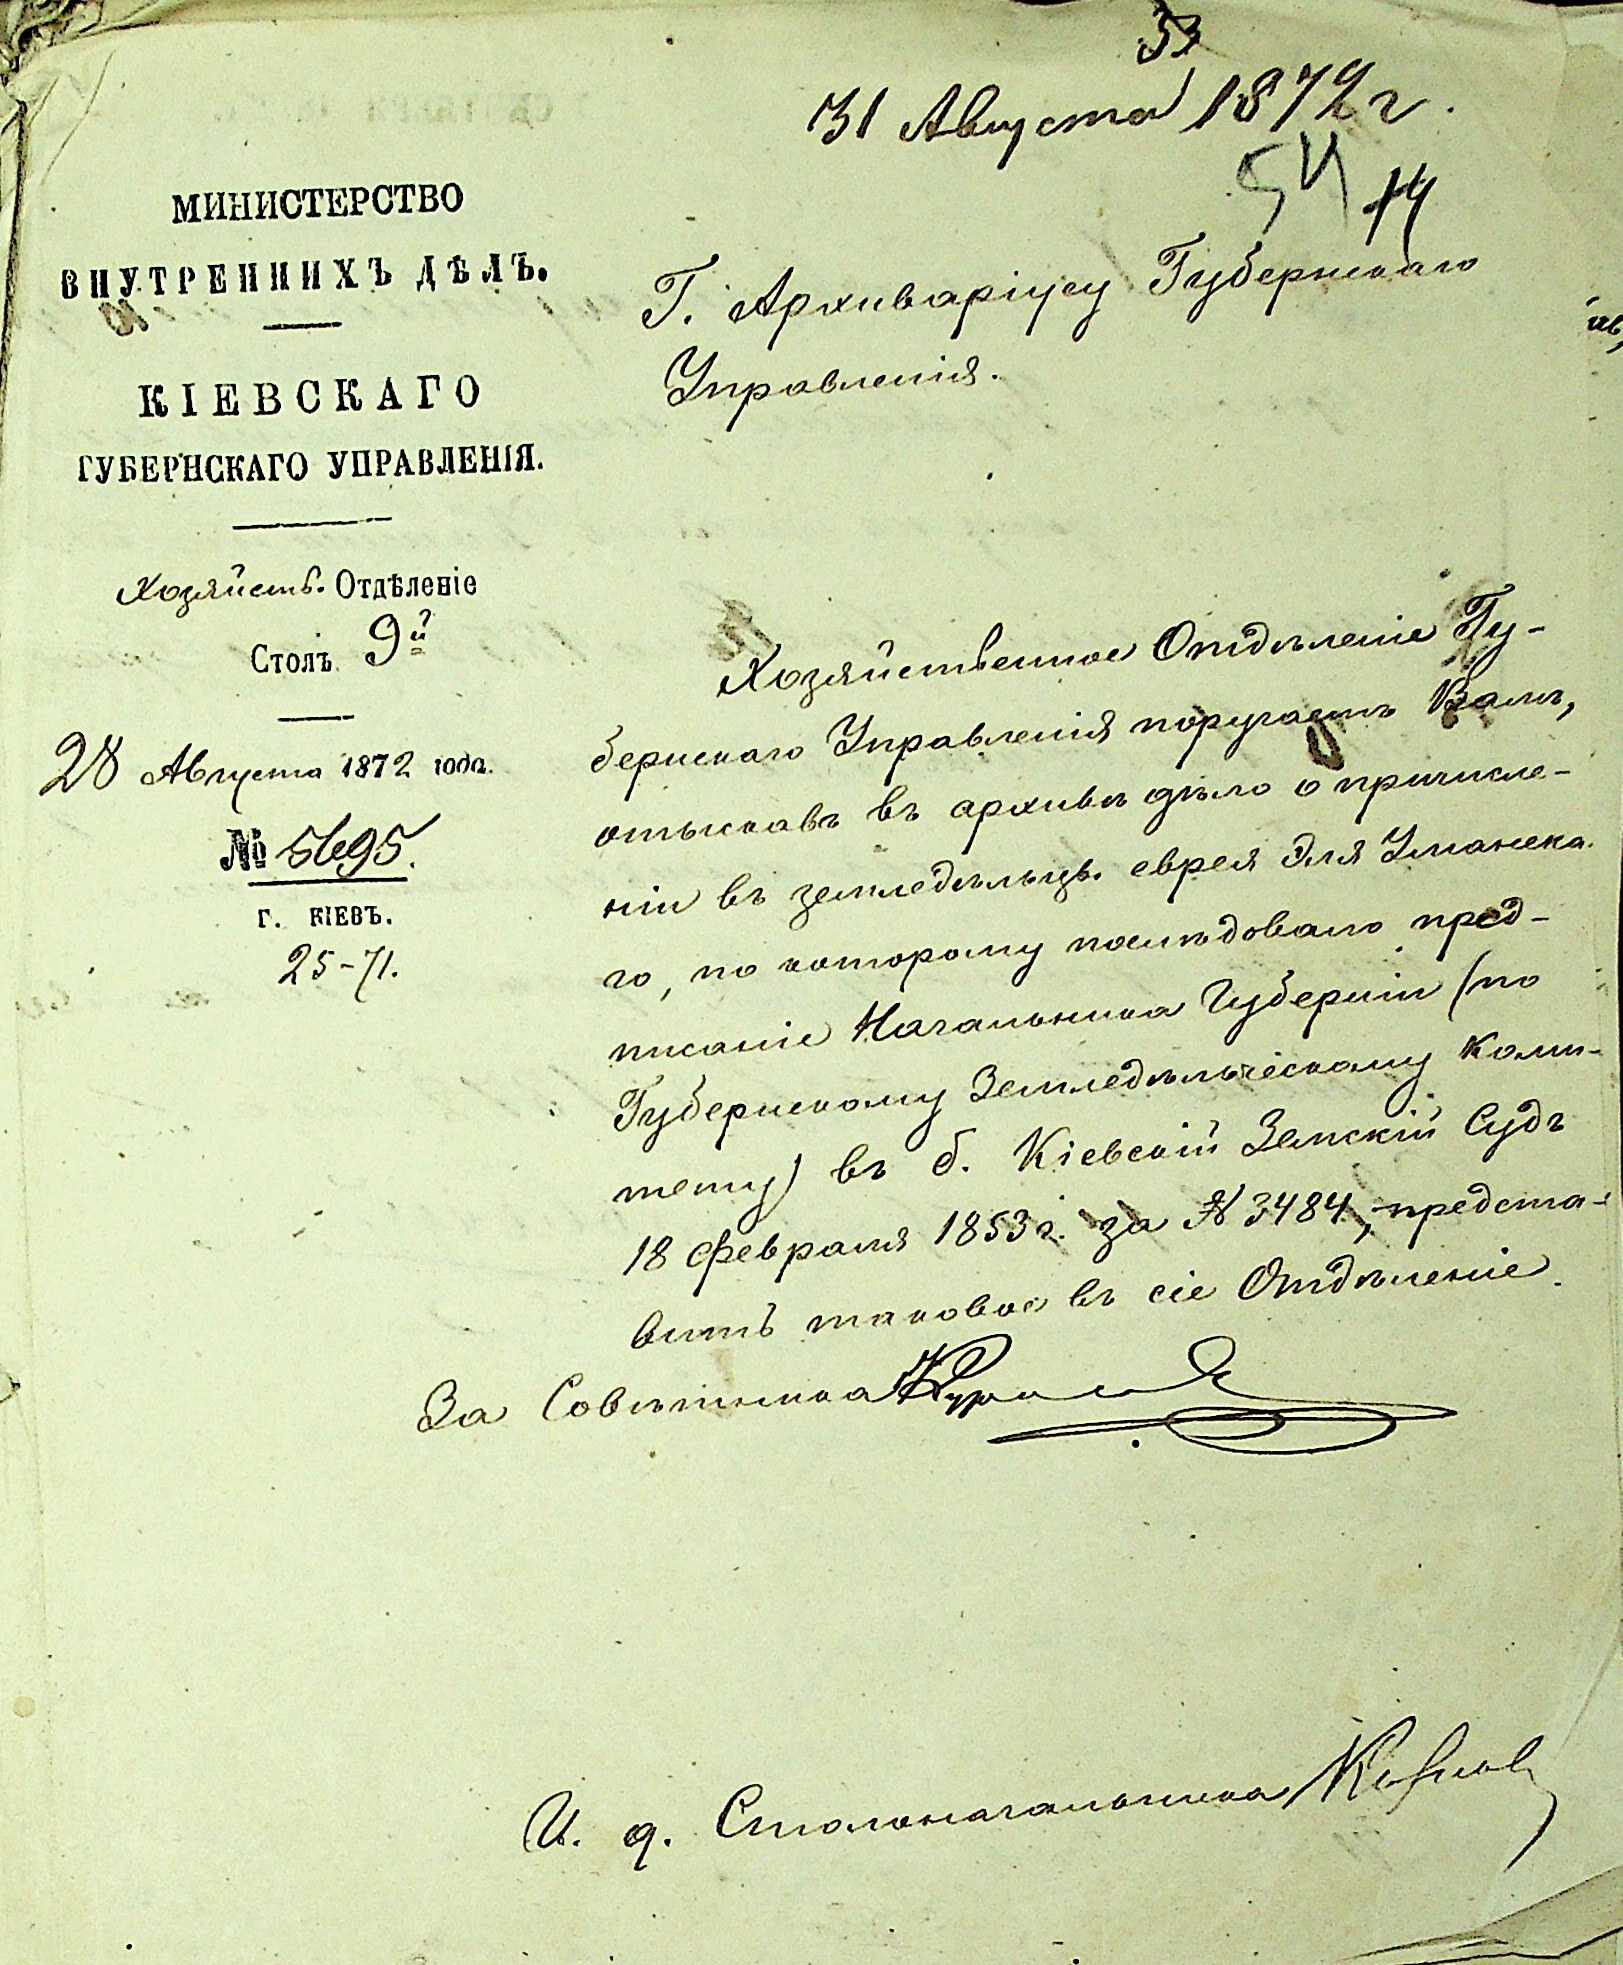 53
31 Августа 1872 г.
54 14
МИНИСТЕРСТВО
ВНУТРЕННИХЪ ДѢЛЪ.
КІЕВСКАГО
ГУБЕРНСКАГО УПРАВЛЕНІЯ.
Хозяйств. Отдѣленіе
Столъ 9й
28 Августа 1872 года.
№ 5695.
Г. КІЕВЪ.
25-71.
Г. Архиваріусу Губернскаго
Управленія.
Хозяйственное Отдѣленіе Гу-
бернскаго Управленія поручаетъ Вамъ,
отыскавъ въ архивѣ дѣло о причисле-
ніи въ земледѣльцы еврея Эля Уманска
го, по которому послѣдовало пред-
писаніе Начальника Губерніи (по
Губернскому Земледѣльческому Коми-
тету) въ б. Кіевскій Земскій Судъ
18 февраля 1853 г. за № 3484, предста-
вить таковое въ сіе Отдѣленіе.
За Совѣтника
И. д. Столоначальника